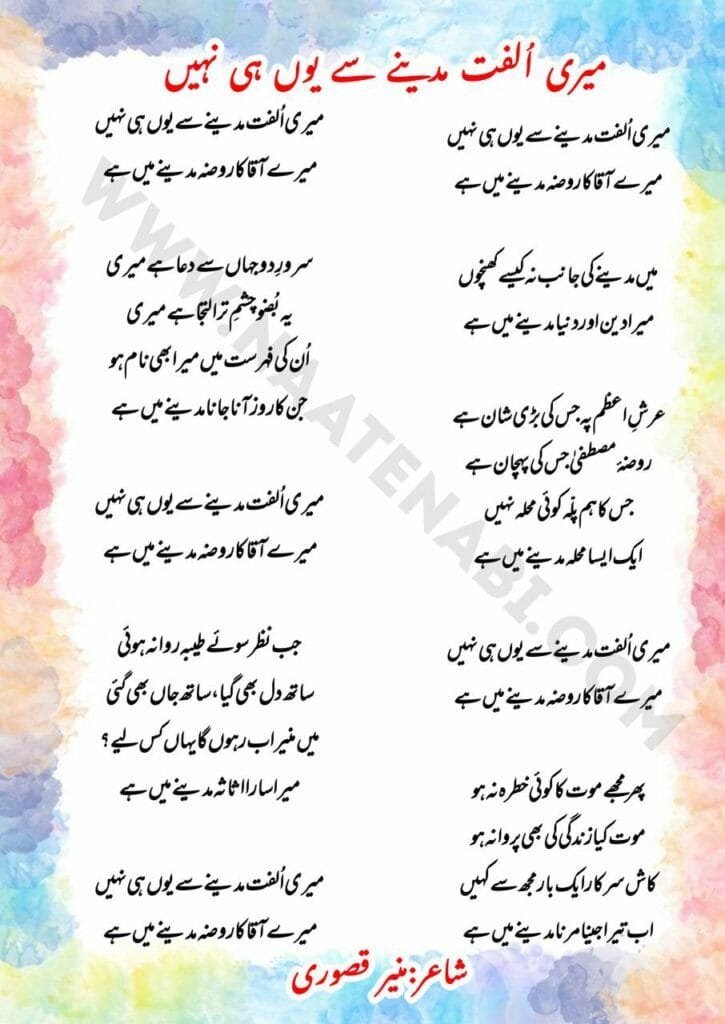 میری اُلفت مدینے سے یوں ہی نہیں
میری اُلفت مدینے سے یوں ہی نہیں
میرے آقا کا روضہ مدینے میں ہے
میں مدینے کی جانب نہ کیسے کھنچوں
میرا دین اور دنیا مدینے میں ہے
عرشِ اعظم پہ جس کی بڑی شان ہے
روضۂ مصطفیٰ جس کی پہچان ہے
جس کا ہم پلّہ کوئی محلہ نہیں
ایک ایسا محلہ مدینے میں ہے
میری اُلفت مدینے سے یوں ہی نہیں
میرے آقا کا روضہ مدینے میں ہے
پھر مجھے موت کا کوئی خطرہ نہ ہو
موت کیا زندگی کی بھی پروا نہ ہو
کاش سرکار ایک بار مجھ سے کہیں
اب تیرا جینا مرنا مدینے میں ہے
میری اُلفت مدینے سے یوں ہی نہیں
میرے آقا کا روضہ مدینے میں ہے
سرورِ دو جہاں سے دعا ہے میری
یہ بُضو چشمِ تر التجا ہے میری
اُن کی فہرست میں میرا بھی نام ہو
جن کا روز آنا جانا مدینے میں ہے
میری اُلفت مدینے سے یوں ہی نہیں
میرے آقا کا روضہ مدینے میں ہے
جب نظر سوئے طیبہ روانہ ہوئی
ساتھ دل بھی گیا، ساتھ جاں بھی گئی
میں منیر اب رہوں گا یہاں کس لیے؟
میرا سارا اثاثہ مدینے میں ہے
میری اُلفت مدینے سے یوں ہی نہیں
میرے آقا کا روضہ مدینے میں ہے
شاعر:منیر قصوری
WWW.NAATENABI.COM